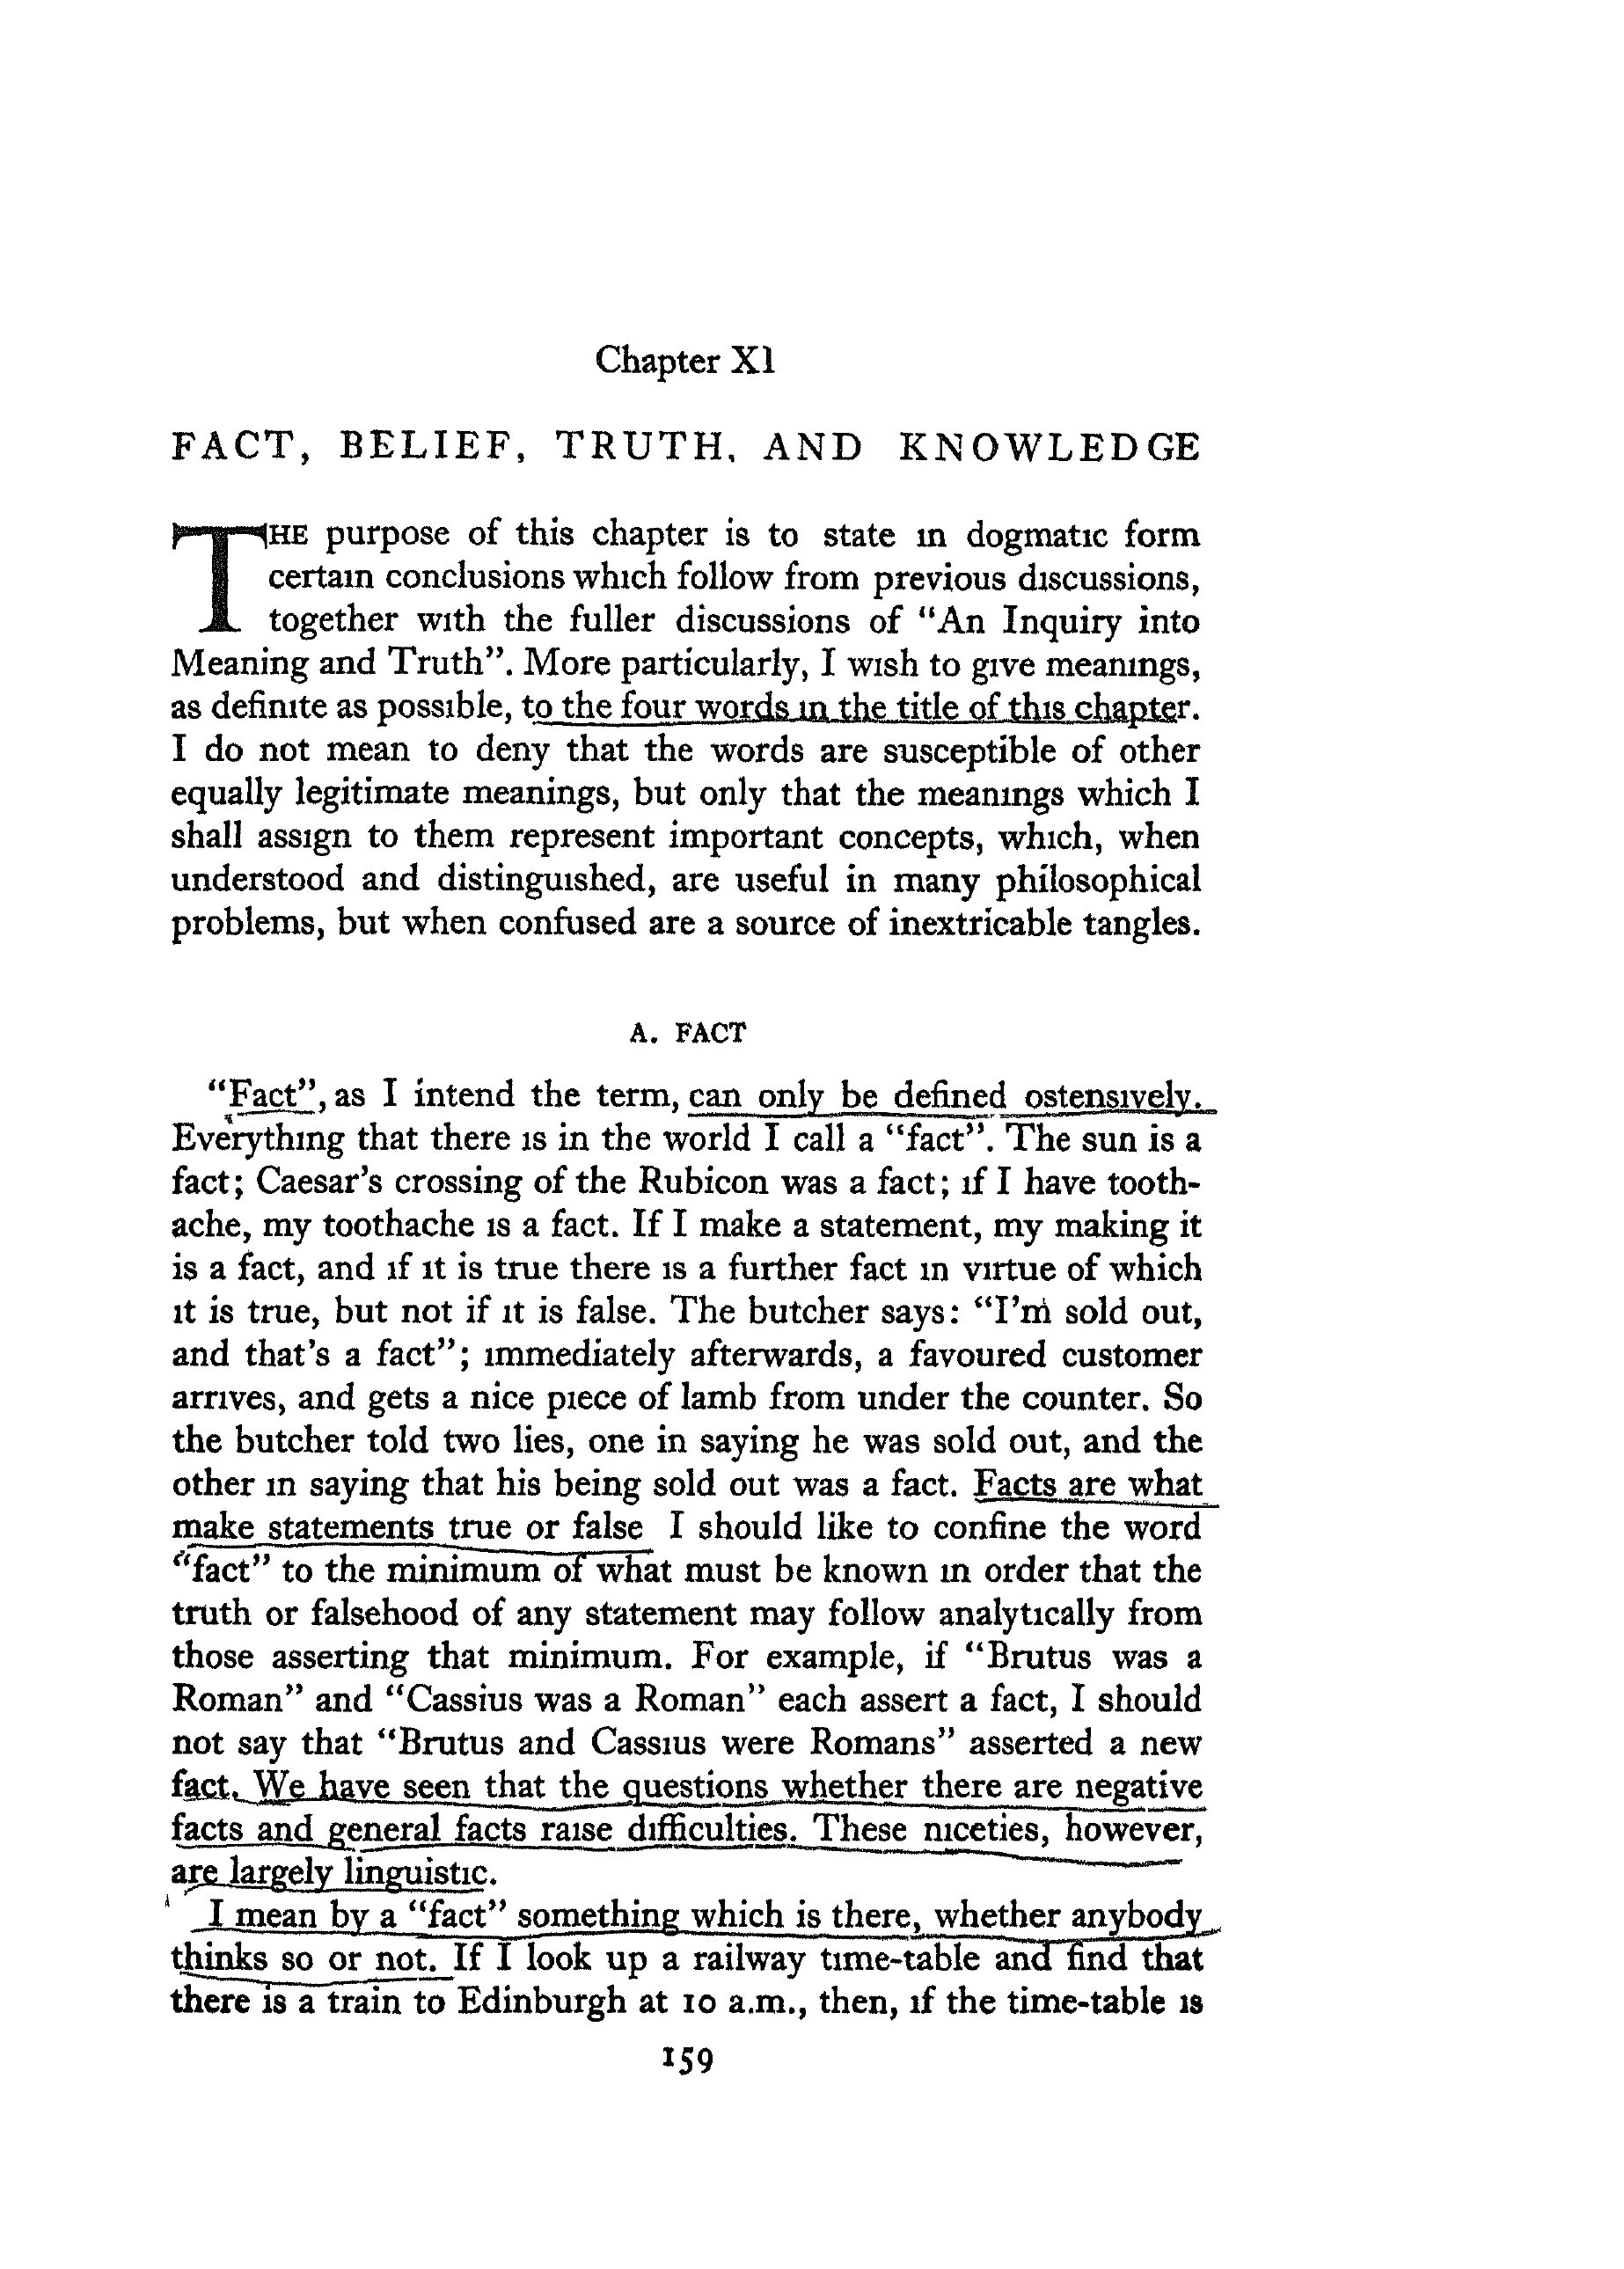 Chapter XI
FACT, BELIEF, TRUTH, AND KNOWLEDGE
THE purpose of this chapter is to state in dogmatic form
certain conclusions which follow from previous discussions,
together with the fuller discussions of “An Inquiry into
Meaning and Truth”. More particularly, I wish to give meanings,
as definite as possible, to the four words in the title of this chapter.
I do not mean to deny that the words are susceptible of other
equally legitimate meanings, but only that the meanings which I
shall assign to them represent important concepts, which, when
understood and distinguished, are useful in many philosophical
problems, but when confused are a source of inextricable tangles.
A. FACT
“Fact”, as I intend the term, can only be defined ostensively.
Everything that there is in the world I call a “fact”. The sun is a
fact; Caesar’s crossing of the Rubicon was a fact; if I have tooth-
ache, my toothache is a fact. If I make a statement, my making it
is a fact, and if it is true there is a further fact in virtue of which
it is true, but not if it is false. The butcher says: “I’m sold out,
and that’s a fact”; immediately afterwards, a favoured customer
arrives, and gets a nice piece of lamb from under the counter. So
the butcher told two lies, one in saying he was sold out, and the
other in saying that his being sold out was a fact. Facts are what
make statements true or false I should like to confine the word
“fact” to the minimum of what must be known in order that the
truth or falsehood of any statement may follow analytically from
those asserting that minimum. For example, if “Brutus was a
Roman” and “Cassius was a Roman” each assert a fact, I should
not say that “Brutus and Cassius were Romans” asserted a new
fact. We have seen that the questions whether there are negative
facts and general facts raise difficulties. These niceties, however,
are largely linguistic.
I mean by a “fact” something which is there, whether anybody
thinks so or not. If I look up a railway time-table and find that
there is a train to Edinburgh at 10 a.m., then, if the time-table is
159